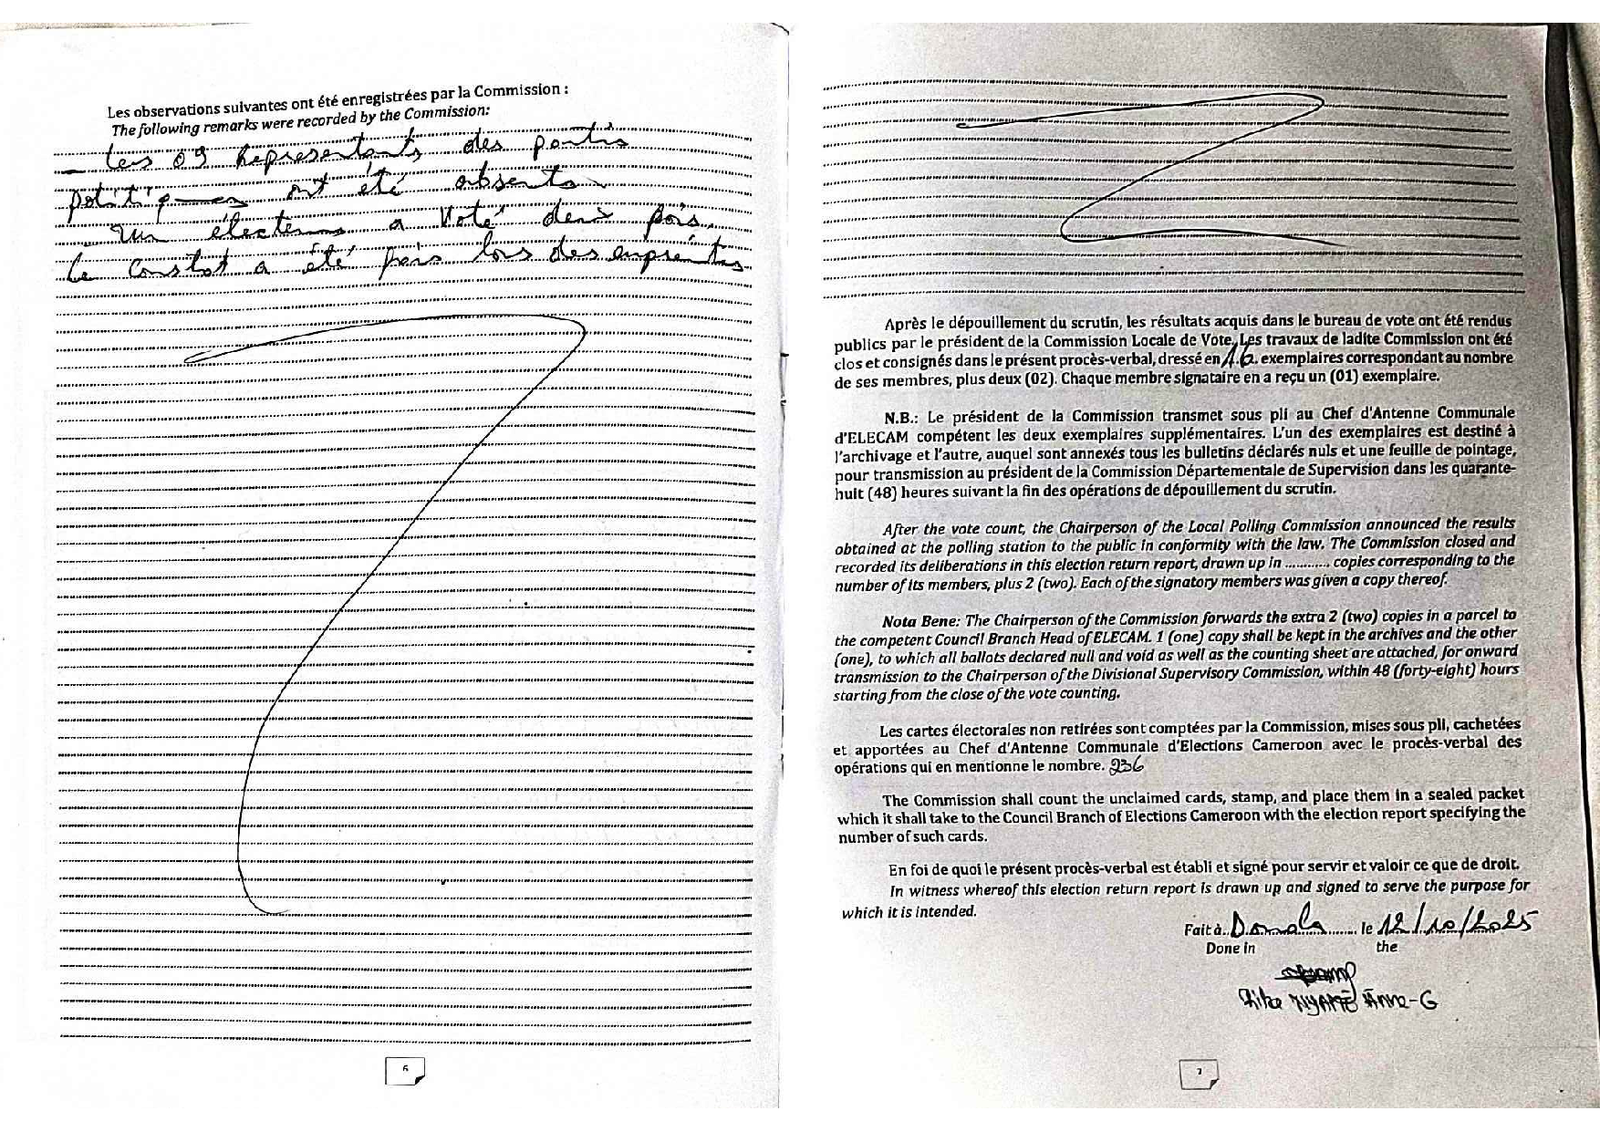 Les observations suivantes ont été enregistrées par la Commission :
The following remarks were recorded by the Commission:
- Les 09 Representants des partis
politiques ont été absents
un électeur a voté deux fois.
le constat a été pris lors des empreintes
6
Après le dépouillement du scrutin, les résultats acquis dans le bureau de vote ont été rendus
publics par le président de la Commission Locale de Vote. Les travaux de ladite Commission ont été
clos et consignés dans le présent procès-verbal, dressé en 16 exemplaires correspondant au nombre
de ses membres, plus deux (02). Chaque membre signataire en a reçu un (01) exemplaire.
N.B.: Le président de la Commission transmet sous pli au Chef d'Antenne Communale
d'ELECAM compétent les deux exemplaires supplémentaires. L'un des exemplaires est destiné à
l'archivage et l'autre, auquel sont annexés tous les bulletins déclarés nuls et une feuille de pointage,
pour transmission au président de la Commission Départementale de Supervision dans les quarante-
huit (48) heures suivant la fin des opérations de dépouillement du scrutin.
After the vote count, the Chairperson of the Local Polling Commission announced the results
obtained at the polling station to the public in conformity with the law. The Commission closed and
recorded its deliberations in this election return report, drawn up in ........... copies corresponding to the
number of its members, plus 2 (two). Each of the signatory members was given a copy thereof.
Nota Bene: The Chairperson of the Commission forwards the extra 2 (two) copies in a parcel to
the competent Council Branch Head of ELECAM. 1 (one) copy shall be kept in the archives and the other
(one), to which all ballots declared null and void as well as the counting sheet are attached, for onward
transmission to the Chairperson of the Divisional Supervisory Commission, within 48 (forty-eight) hours
starting from the close of the vote counting.
Les cartes électorales non retirées sont comptées par la Commission, mises sous pli, cachetées
et apportées au Chef d'Antenne Communale d'Elections Cameroon avec le procès-verbal des
opérations qui en mentionne le nombre. 236
The Commission shall count the unclaimed cards, stamp, and place them in a sealed packet
which it shall take to the Council Branch of Elections Cameroon with the election report specifying the
number of such cards.
En foi de quoi le présent procès-verbal est établi et signé pour servir et valoir ce que de droit.
In witness whereof this election return report is drawn up and signed to serve the purpose for
which it is intended.
Fait à Douala le 12/10/2025
Done in the
Anne-G
7